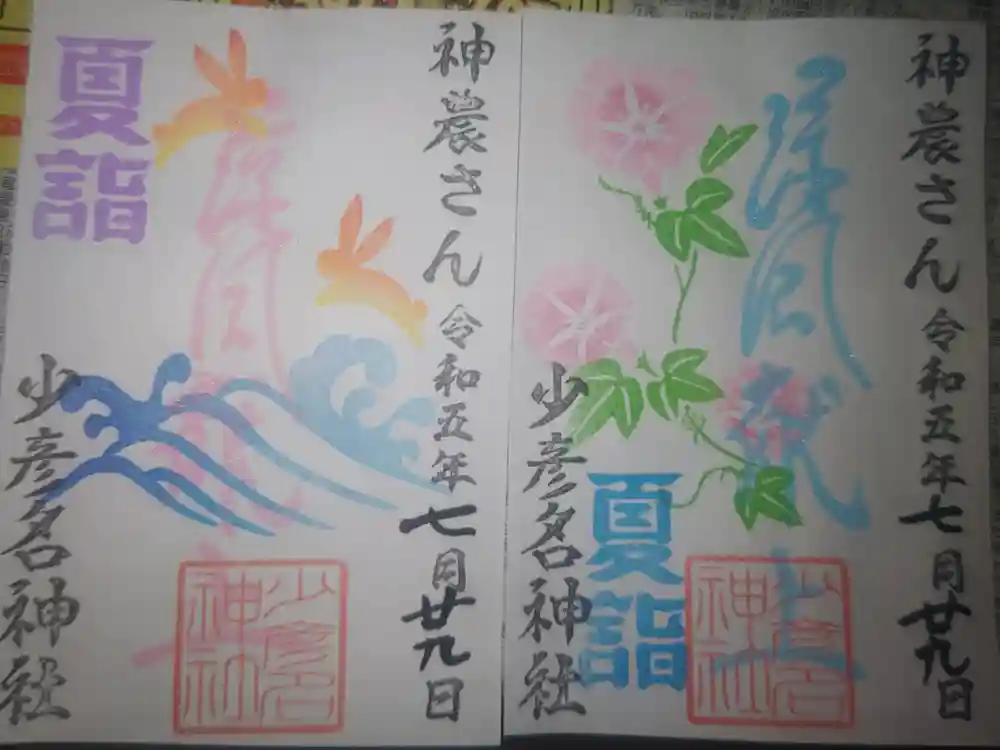 神農さん 令和五年七月廿九日
夏詣
少彦名神社
少彦名神社
神農さん 令和五年七月廿九日
夏詣
少彦名神社
少彦名神社